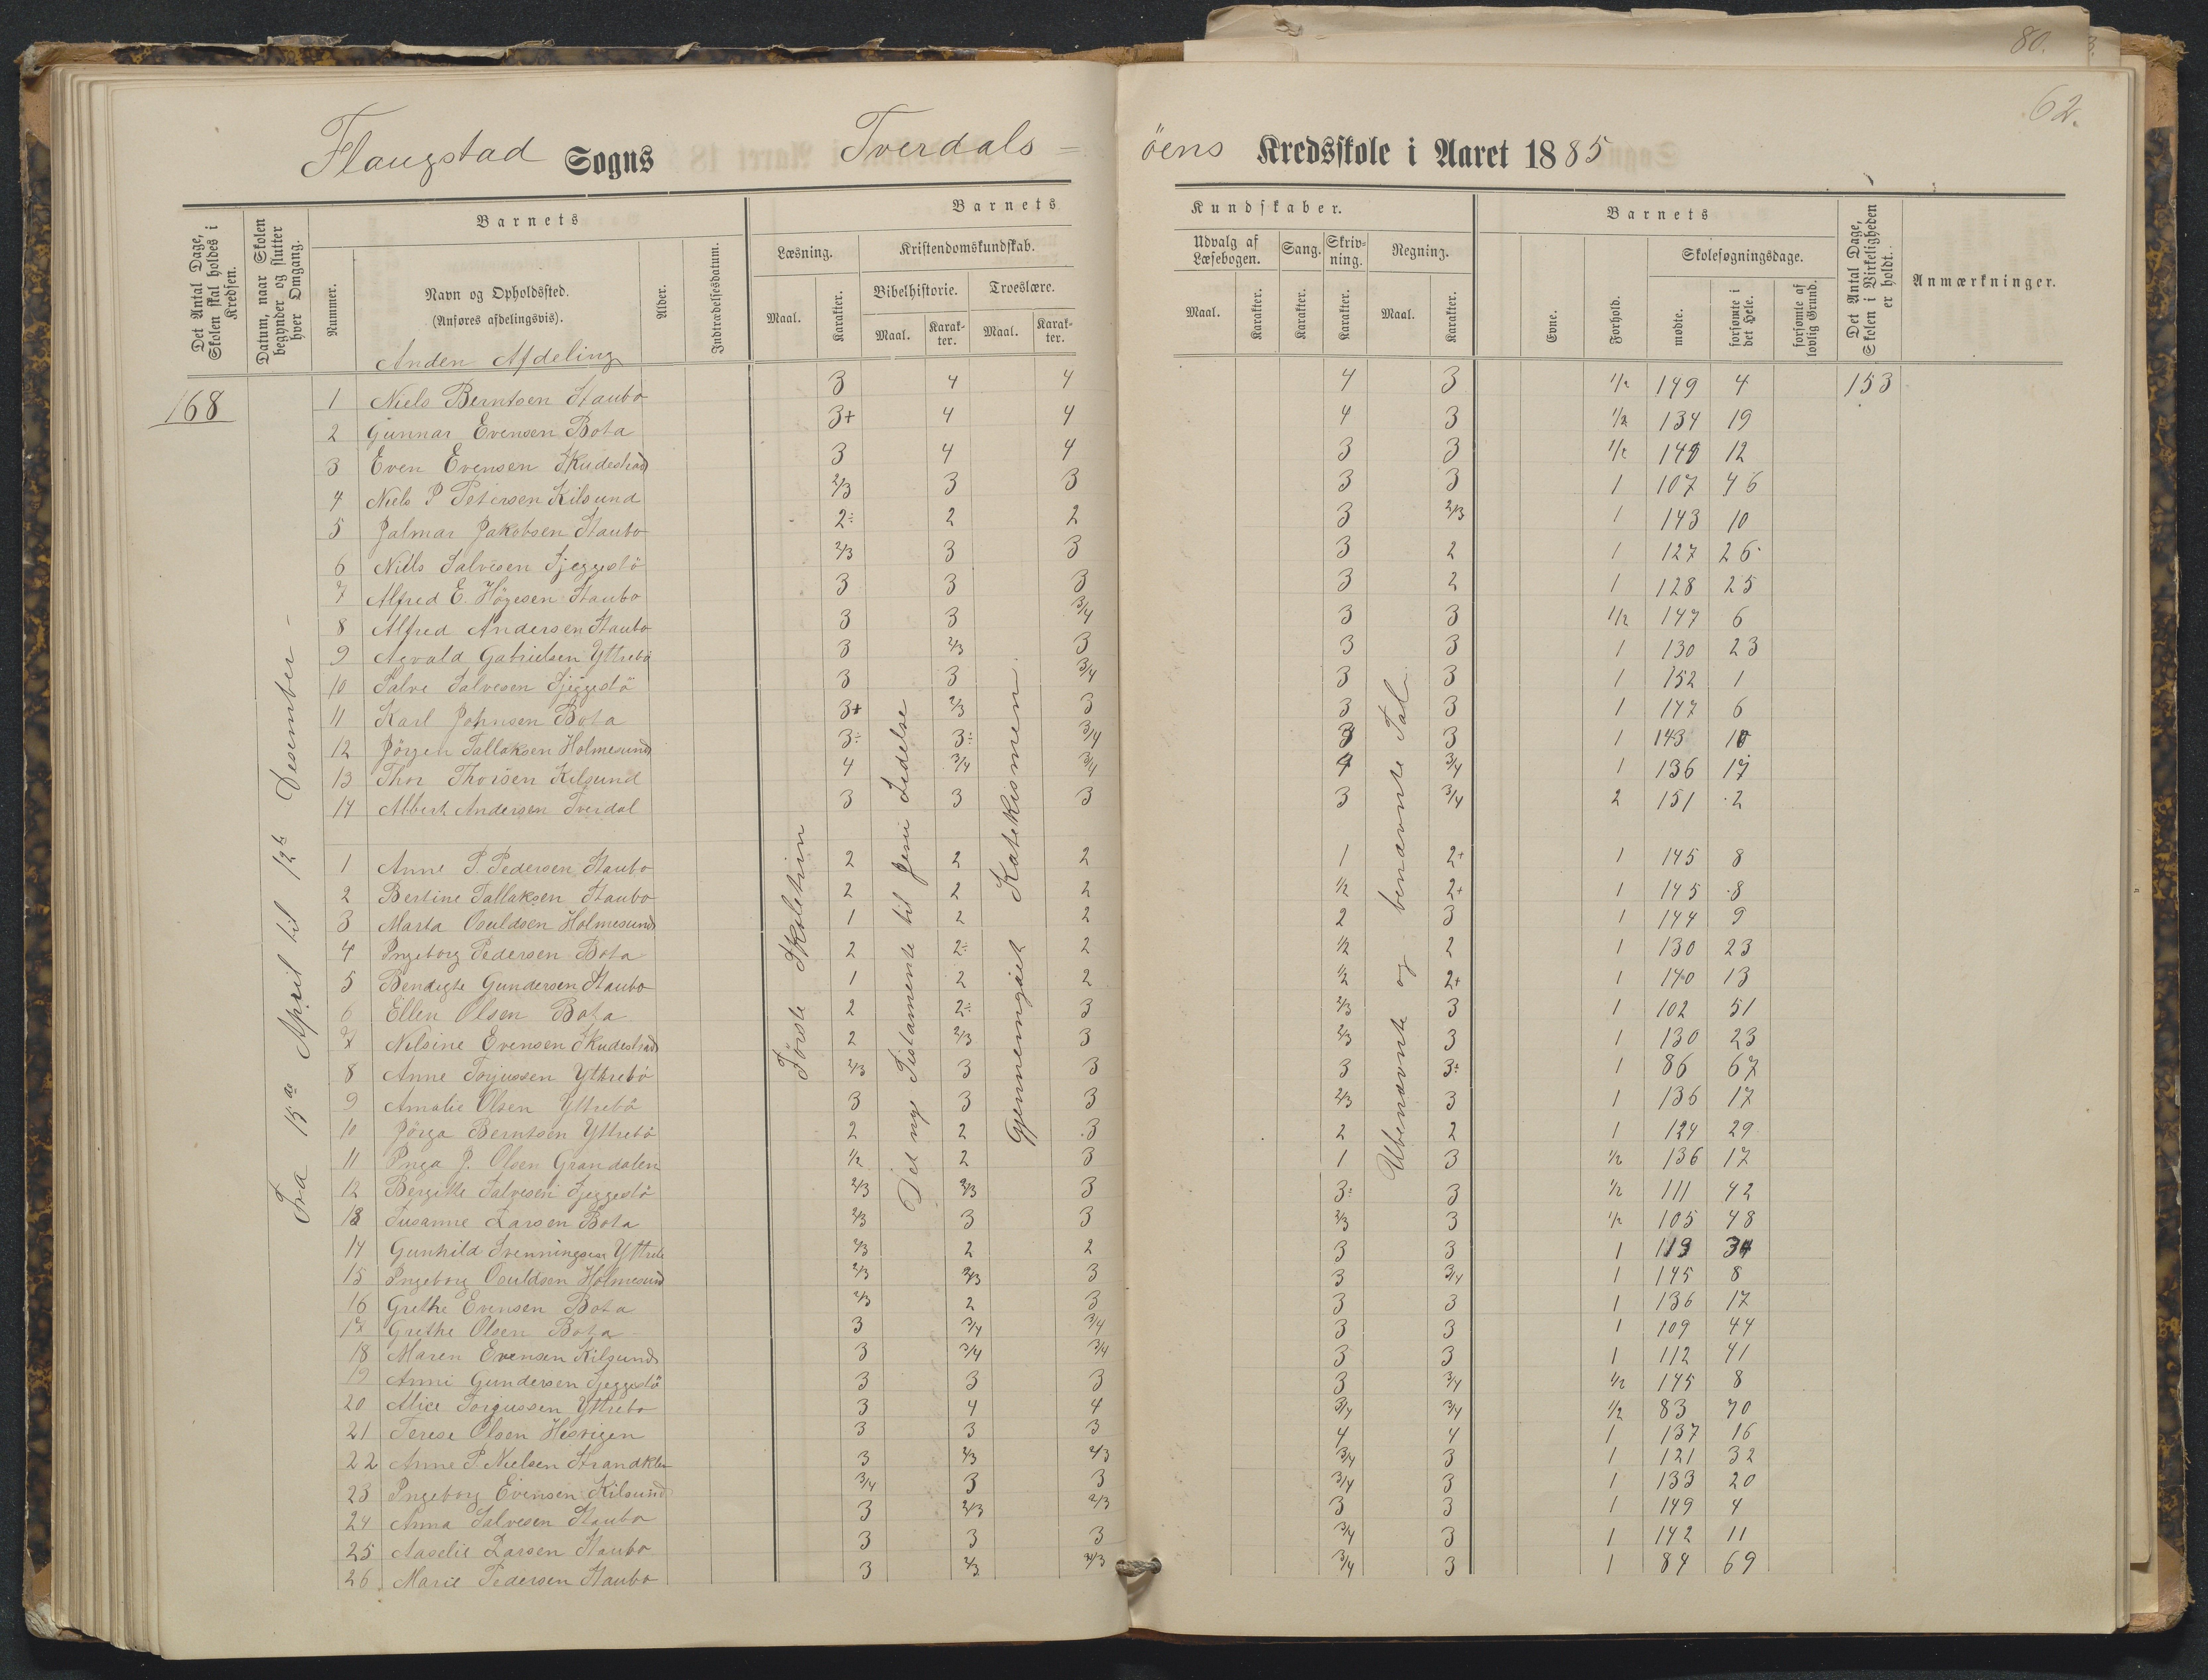 80.
62.
Flaugstad Sogns Tverdals=
öens Kredsskole i Aaret 1885
Det Antal Dage, Skolen skal holdes i Kredsen.
Datum, naar Skolen begynder og slutter hver Omgang.
Barnets
Nummer.
Navn og Opholdssted.
(Anføres afdelingsvis).
Alder.
Indtrædelsesdatum.
Barnets
Læsning.
Kristendomskundskab.
Maal.
Karakter.
Bibelhistorie.
Troeslære.
Maal.
Karakter.
Maal.
Karakter.
Kundskaber.
Udvalg af Læsebogen.
Sang.
Skrivning.
Regning.
Maal.
Karakter.
Karakter.
Karakter.
Maal.
Karakter.
Barnets
Evne.
Forhold.
Skolesøgningsdage.
mødte.
forsømte i det Hele.
forsømte af lovlig Grund.
Det Antal Dage, Skolen i Virkeligheden er holdt.
Anmærkninger.
Anden Afdeling
168
Fra 15de April til 12te Desember -
Første Skoletrin
Det nye Testamente til Jesu Lidelse
Katekismen gjennemgaaet
Ubenævnte og benævnte Tal
153
1 Niels Berntsen Staubo 3 4 4 4 3 1/2 149 4
2 Gunnar Evensen Bota 3+ 4 4 4 3 1/2 134 19
3 Even Evensen Skudestad 3 4 4 3 3 1/2 12
4 Niels P Petersen Kilsund 2/3 3 3 3 3 1 107 46
5 Jalmar Jakobsen Staubo 2÷ 2 2 3 2/3 1 143 10
6 Niels Salvesen Sjeggestö 2/3 3 3 3 2 1 127 26
7 Alfred E. Høyesen Staubo 3 3 3 3 2 1 128 25
8 Alfred Andersen Staubo 3 3 3/4 3 3 1/2 147 6
9 Agvald Gabrielsen Yttrebö 3 2/3 3 3 3 1 130 23
10 Salve Salvesen Sjeggestö 3 3 3/4 3 3 1 152 1
11 Karl Johnsen Bota 3+ 2/3 3 3 3 1 147 6
12 Jörgen Tallaksen Holmesund 3÷ 3÷ 3/4 3 3 1 143 10
13 Thor Thorsen Kilsund 4 3/4 3/4 4 3/4 1 136 17
14 Albert Andersen Tverdal 3 3 3 3 3/4 2 151 2
1 Anne P. Pedersen Staubo 2 2 2 1 2+ 1 145 8
2 Bertine Tallaksen Staubo 2 2 2 1/2 2+ 1 145 8
3 Marta Osuldsen Holmesund 1 2 2 2 3 1 144 9
4 Ingeborg Pedersen Bota 2 2÷ 2 1/2 2 1 130 23
5 Bendigte Gundersen Staubo 1 2 2 1/2 2+ 1 140 13
6 Ellen Olsen Bota 2 2÷ 3 2/3 3 1 102 51
7 Nilsine Evensen Skudestad 2 2/3 3 2/3 3 1 130 23
8 Anne Torjussen Yttrebö 2/3 3 3 3 3÷ 1 86 67
9 Amalie Olsen Yttrebö 3 3 3 2/3 3 1 136 17
10 Jörga Berntsen Yttrebö 2 2 3 2 2 1 124 29
11 Inga J. Olsen Grandalen 1/2 2 3 1 3 1/2 136 17
12 Bergitte Salvesen Sjeggestö 2/3 2/3 3 3÷ 3 1/2 111 42
13 Susanne Larsen Bota 2/3 3 3 2/3 3 1/2 105 48
14 Gunhild Svenningsen Yttreb 2/3 2 2 3 3 1 119 34
15 Ingeborg Osuldsen Holmesund 2/3 2/3 3 3 3/4 1 145 8
16 Grethe Evensen Bota 2/3 2 3 3 3 1 136 17
17 Grethe Olsen Bota 3 3/4 3/4 3 3 1 109 44
18 Maren Evensen Kilsund 3 3/4 3/4 3 3 1 112 41
19 Anni Gundersen Sjeggestö 3 3 3 3 3/4 1/2 145 8
20 Alice Torjussen Yttrebo 3 4 4 3/4 3/4 1/2 83 70
21 Terese Olsen Hesvigen 3 3 3 4 4 1 137 16
22 Anne P. Nielsen Strandklev 3 2/3 2/3 3/4 3 1 121 32
23 Ingeborg Evensen Kilsund 3/4 3 3 3/4 3 1 133 20
24 Anna Salvesen Staubo 3 2/3 2/3 3 3 1 149 4
25 Aaselie Larsen Staubo 3 3 3 3/4 3 1 142 11
26 Marie Pedersen Staubo 3 2/3 2/3 3/4 3 1 84 69